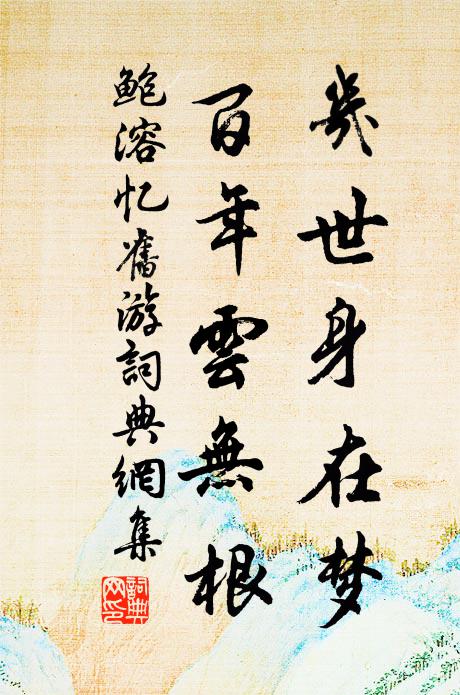 幾世身在梦
百年雲無根
鲍溶忆舊游詞典網集
詞典
网印